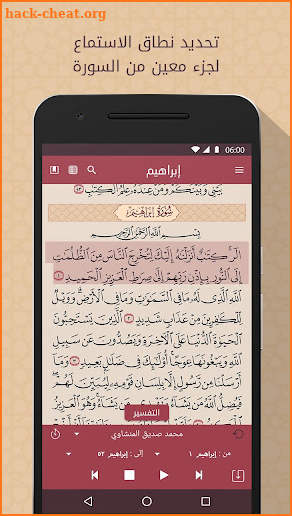 hack-cheat.org
تحديد نطاق الاستماع
لجزء معين من السورة
06:00
إبراهيم
بَيْنِي وَبَيْنَكُمْ وَمَنْ عِندَهُۥ عِلْمُ ٱلْكِتَٰبِ ٤٣
سُورَةُ إِبْرَاهِيمَ
بِسْمِ ٱللَّهِ ٱلرَّحْمَٰنِ ٱلرَّحِيمِ
الٓر كِتَٰبٌ أَنزَلْنَٰهُ إِلَيْكَ لِتُخْرِجَ ٱلنَّاسَ مِنَ ٱلظُّلُمَٰتِ
إِلَى ٱلنُّورِ بِإِذْنِ رَبِّهِمْ إِلَىٰ صِرَٰطِ ٱلْعَزِيزِ ٱلْحَمِيدِ ١
ٱللَّهِ ٱلَّذِي لَهُۥ مَا فِي ٱلسَّمَٰوَٰتِ وَمَا فِي ٱلْأَرْضِ وَوَيْلٌ
لِّلْكَٰفِرِينَ مِنْ عَذَابٍ شَدِيدٍ ٢ ٱلَّذِينَ يَسْتَحِبُّونَ
ٱلْحَيَوٰةَ ٱلدُّنْيَا عَلَى ٱلْءَاخِرَةِ وَيَصُدُّونَ عَن سَبِيلِ
ٱللَّهِ وَيَبْغُونَهَا عِوَجًا أُو۟لَٰٓئِكَ فِي ضَلَٰلٍۭ بَعِيدٍ ٣ وَمَآ
أَرْسَلْنَا مِن رَّسُولٍ إِلَّا بِلِسَانِ قَوْمِهِۦ لِيُبَيِّنَ لَهُمْ
فَيُضِلُّ ٱللَّهُ مَن يَشَآءُ وَيَهْدِي مَن يَشَآءُ وَهُوَ ٱلْعَزِيزُ
التفسير
محمد صديق المنشاوي
من: إبراهيم ١ إلى: إبراهيم ٥٢